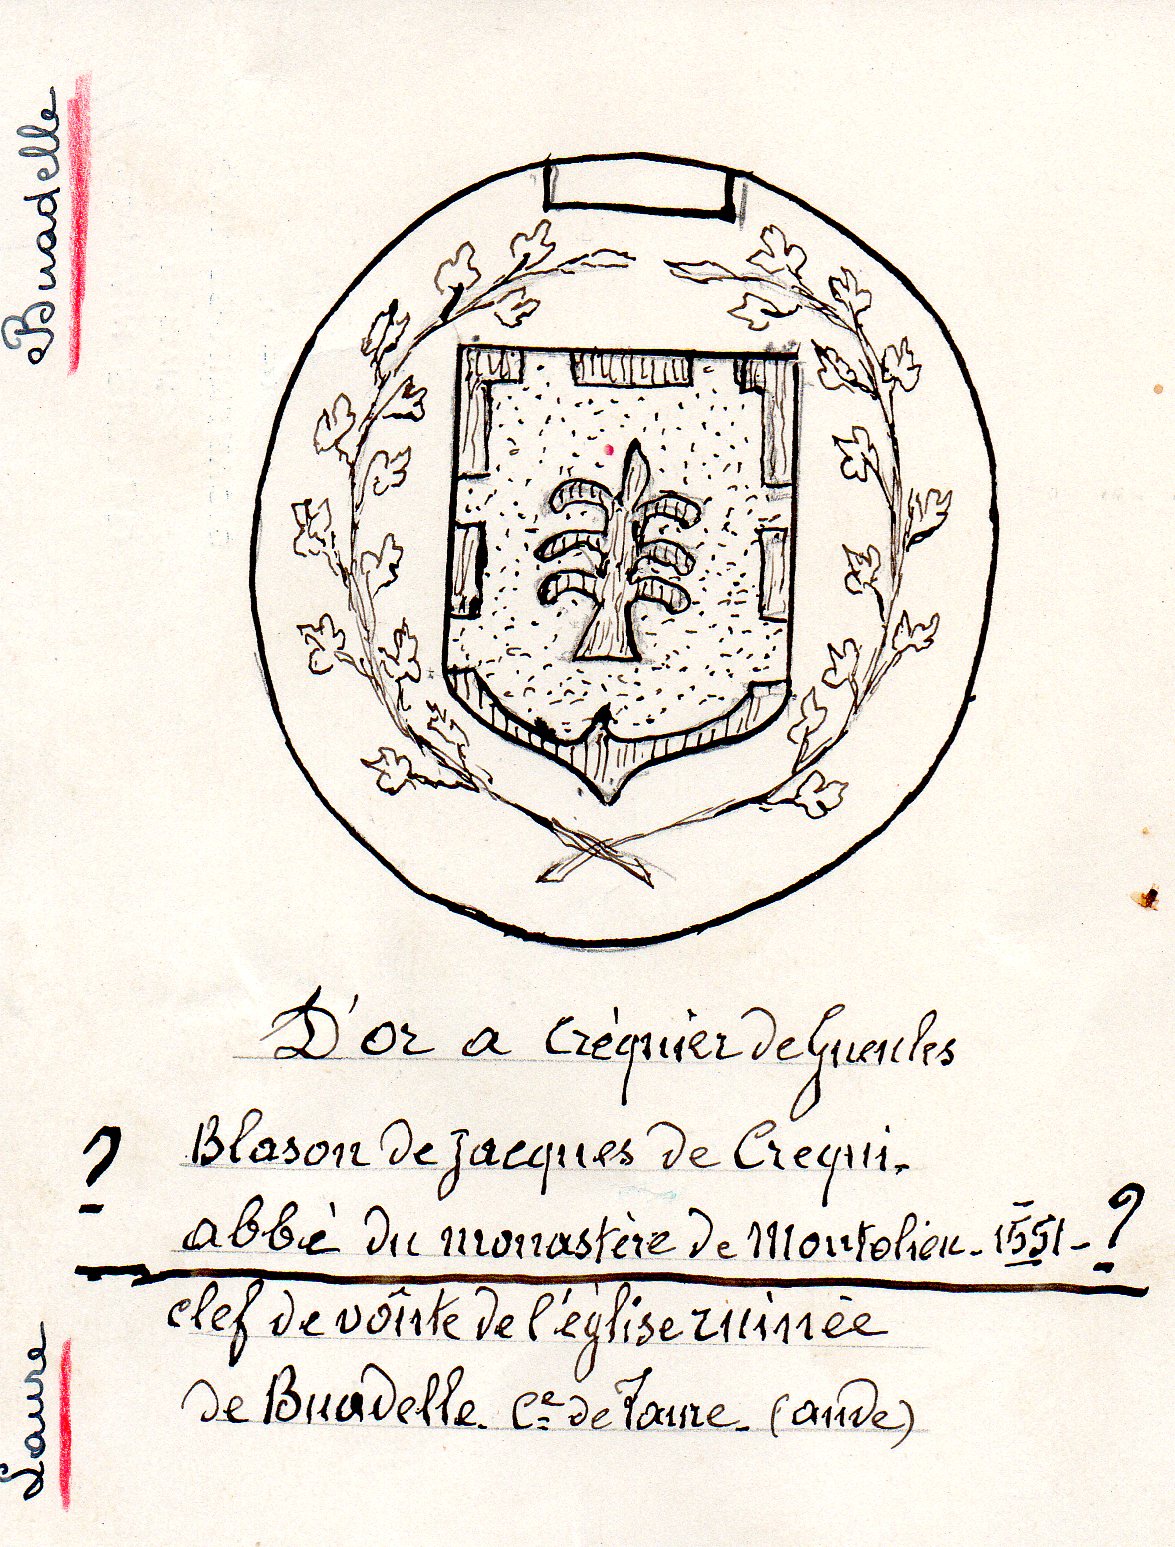 Buadelle
D'or a créquier de Gueules
? Blason de Jacques de Crequi.
abbé du monastère de Montolieu - 1551 - ?
clef de voûte de l'église ruinée
de Buadelle. Cᵉ de Laure - (aude)
Laure